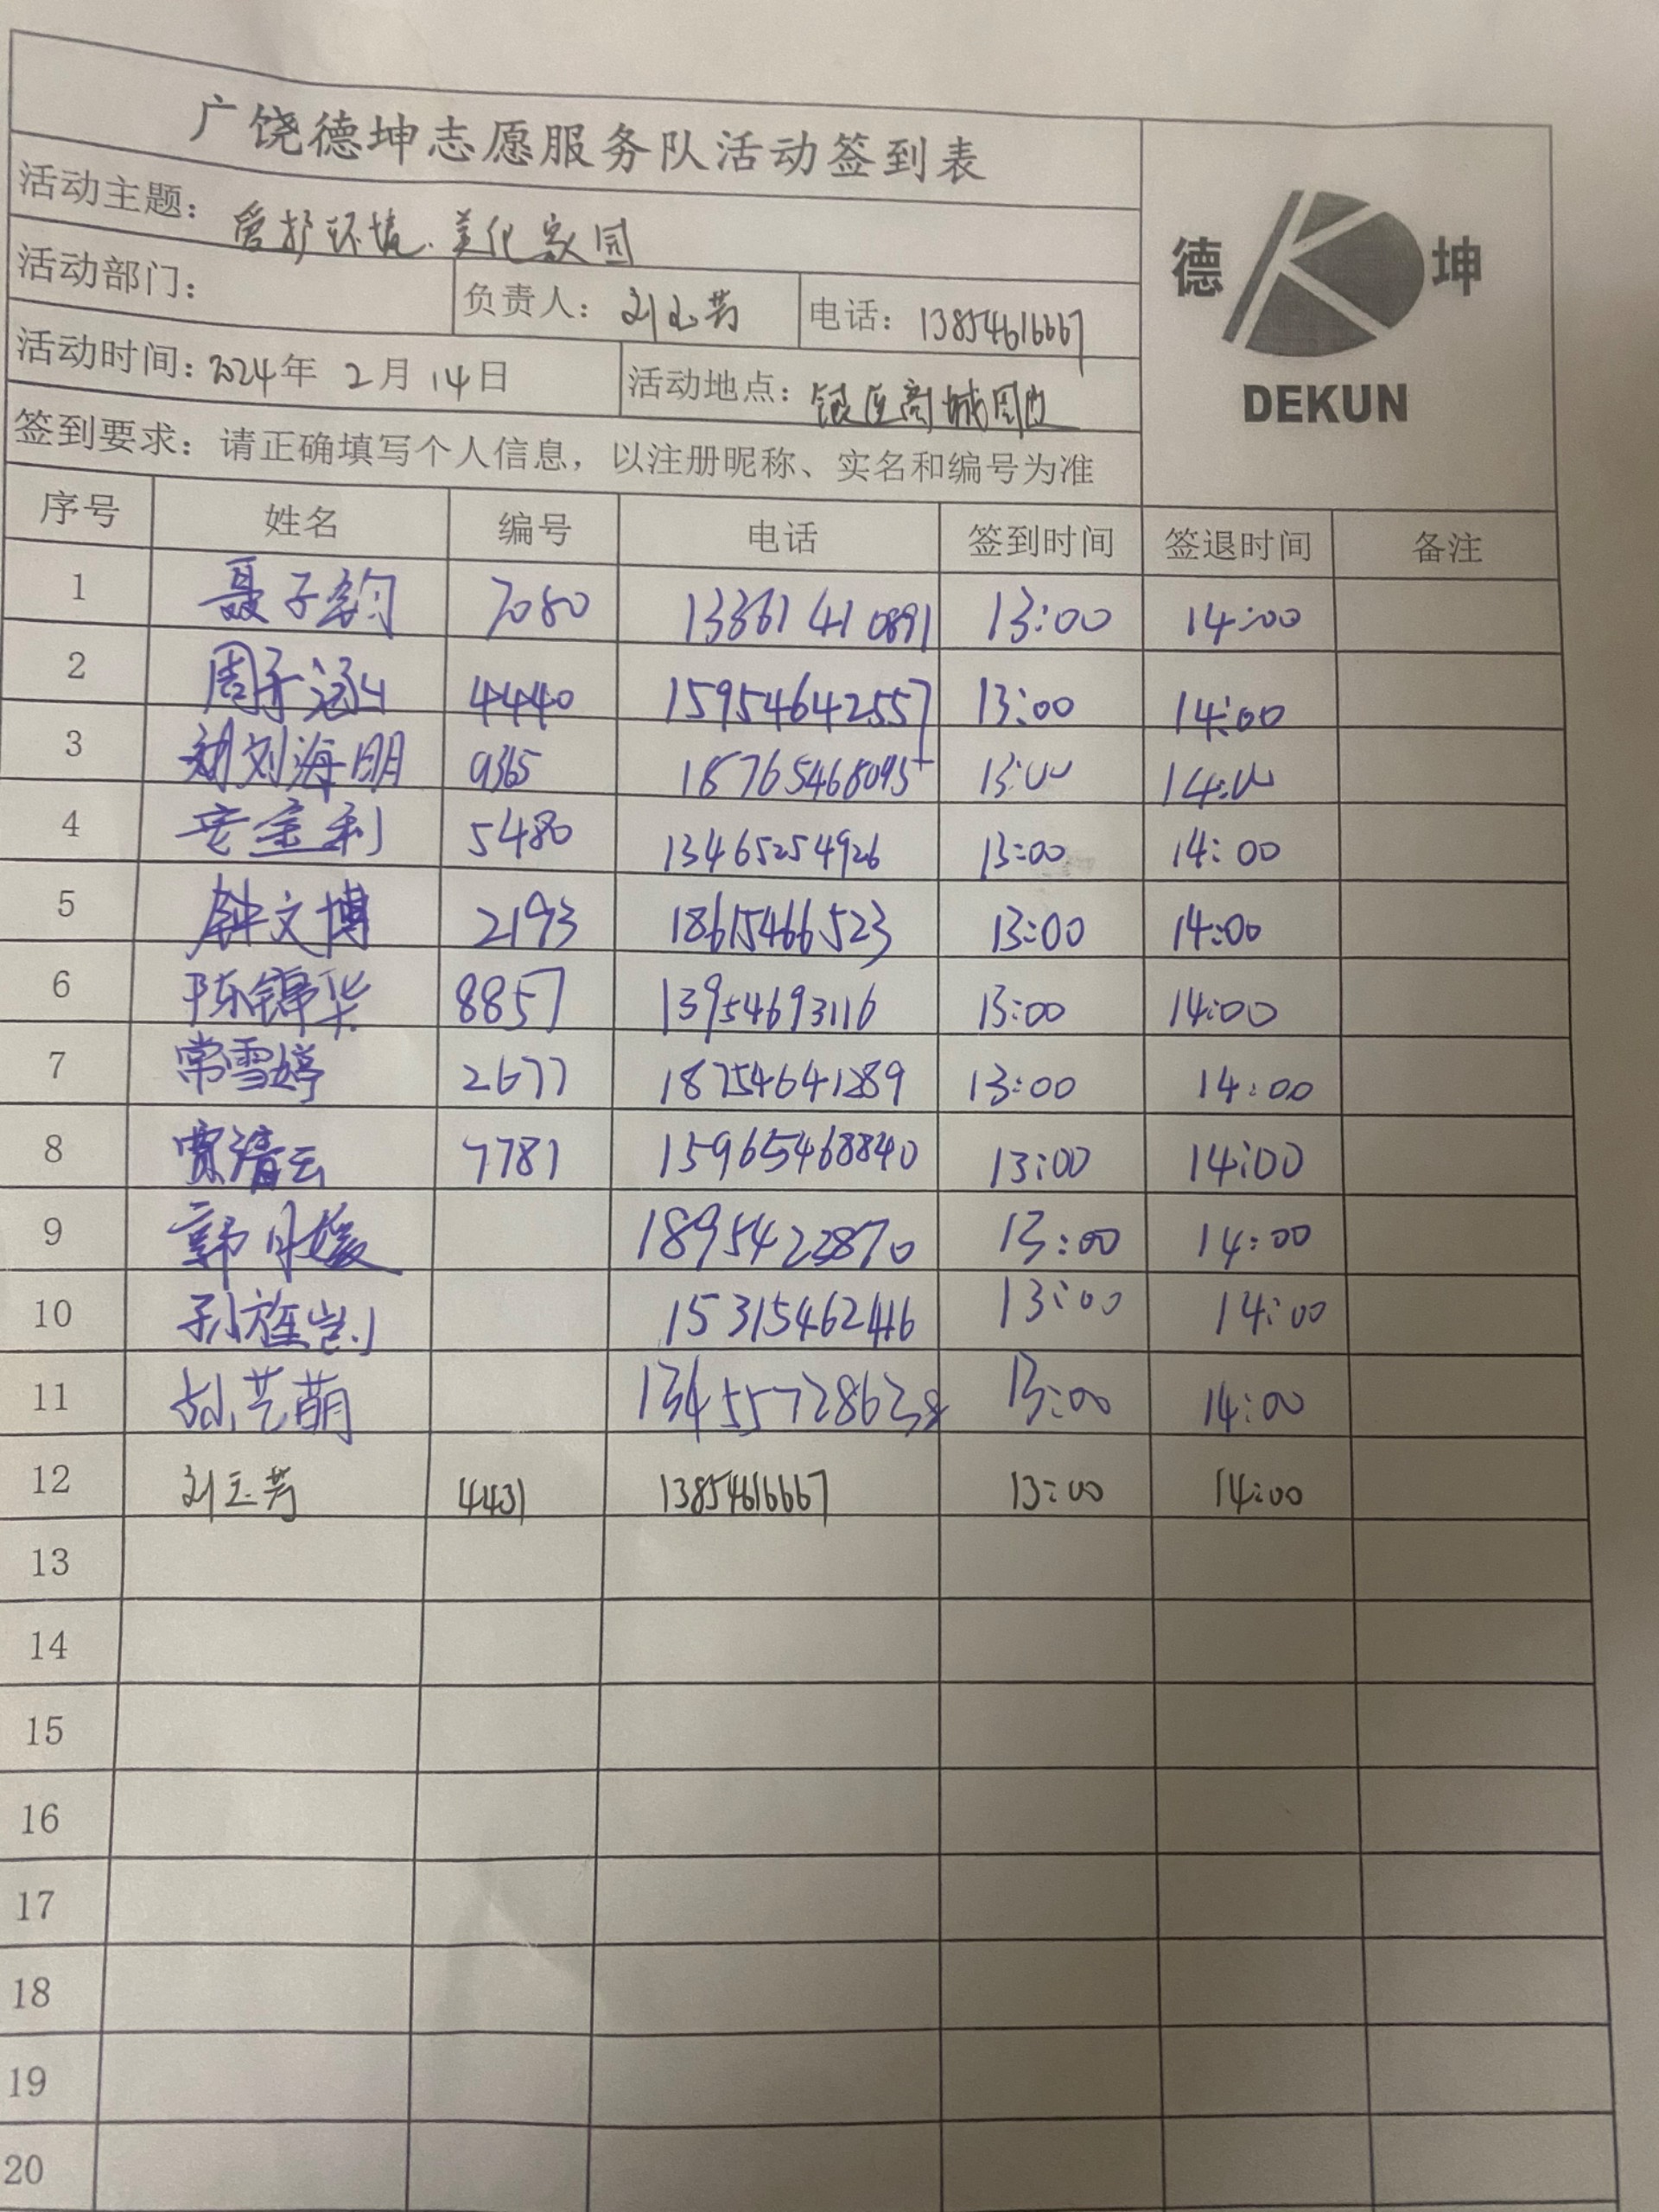 广饶德坤志愿服务队活动签到表
活动主题：爱护环境.美化家园
德 坤
DEKUN
活动部门： 负责人：刘玉芳 电话：13854616667
活动时间：2024年 2月 14日 活动地点：银座商城周边
签到要求：请正确填写个人信息，以注册昵称、实名和编号为准
序号 姓名 编号 电话 签到时间 签退时间 备注
1 聂子韵 7080 13361410891 13:00 14:00
2 周子涵 4440 15954642557 13:00 14:00
3 刘海明 9365 18765468095 13:00 14:00
4 安金利 5480 13465254926 13:00 14:00
5 钟文博 2193 18615466523 13:00 14:00
6 陈锦华 8857 13954693116 13:00 14:00
7 常雪婷 2677 18754641289 13:00 14:00
8 贾清云 7781 15965468840 13:00 14:00
9 郭月媛 1895422870 13:00 14:00
10 孙 15315462416 13:00 14:00
11 孙艺萌 13:00 14:00
12 刘玉芳 4431 13854616667 13:00 14:00
13
14
15
16
17
18
19
20